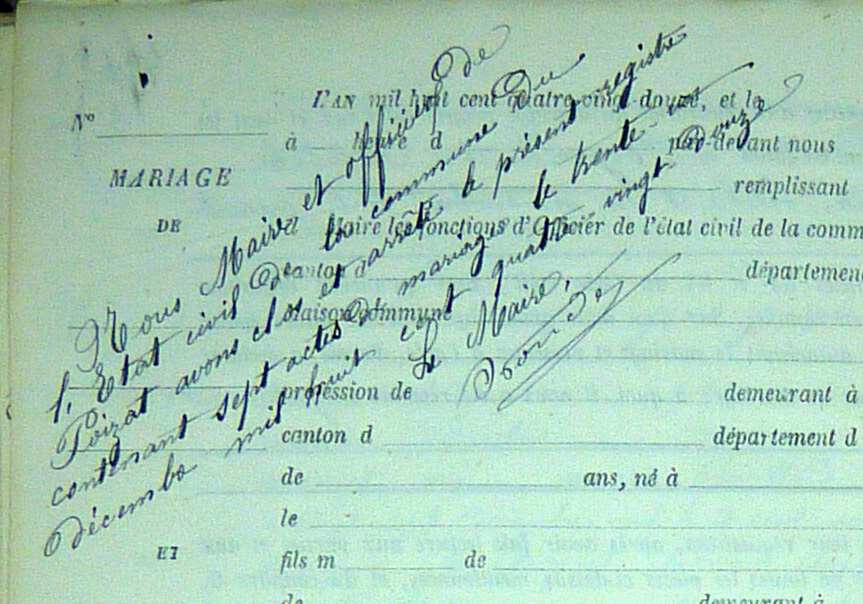 N°
L'AN mil huit cent quatre-vingt-douze, et le
à heure d par-devant nous
MARIAGE
remplissant
DE
d Maire les fonctions d'Officier de l'état civil de la comm
canton d département
Maison commune
profession de demeurant à
canton d département d
de ans, né à
le
ET
fils m de
de demeurant à
Nous Maire et officier de
l'Etat civil de la commune du
Poizat avons clos et arrêté le présent registre
contenant sept actes de mariages le trente-un
décembe mil huit cent quatre-vingt-douze
Le Maire,